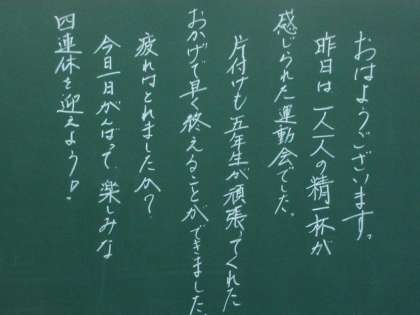 おはようございます。
昨日は一人一人の精一杯が
感じられた運動会でした。
片付けも五年生が頑張ってくれた
おかげで早く終えることができました。
疲れはとれましたか？
今日一日がんばって、楽しみな
四連休を迎えよう！